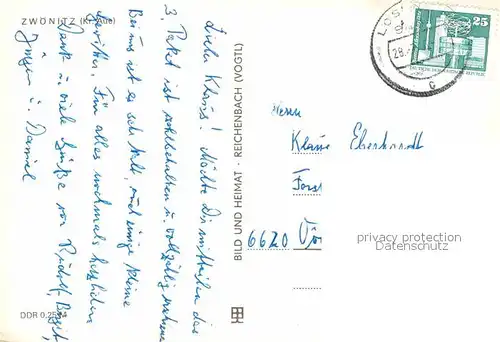 ZWÖNITZ (Kr. Aue)
Lieber Klaus! Möchte Dir mitteilen das
3. Paket ist wohlbehalten u. vollzählig
Bei uns ist es sehr kalt, auch einige kleine
Für alles nochmals herzlichen
Dank u. viele Grüße von Rudolf, Birgit,
Jürgen u. Daniel
DDR 0.25
BILD UND HEIMAT · REICHENBACH (VOGTL)
25
28.
c
Herrn
Klaus Eberhardt
Forst
6620
privacy protection
Datenschutz